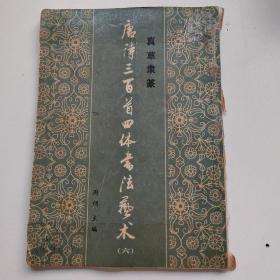 真草隶篆
唐诗三百首四体书法艺术
(六)
周倜 主编